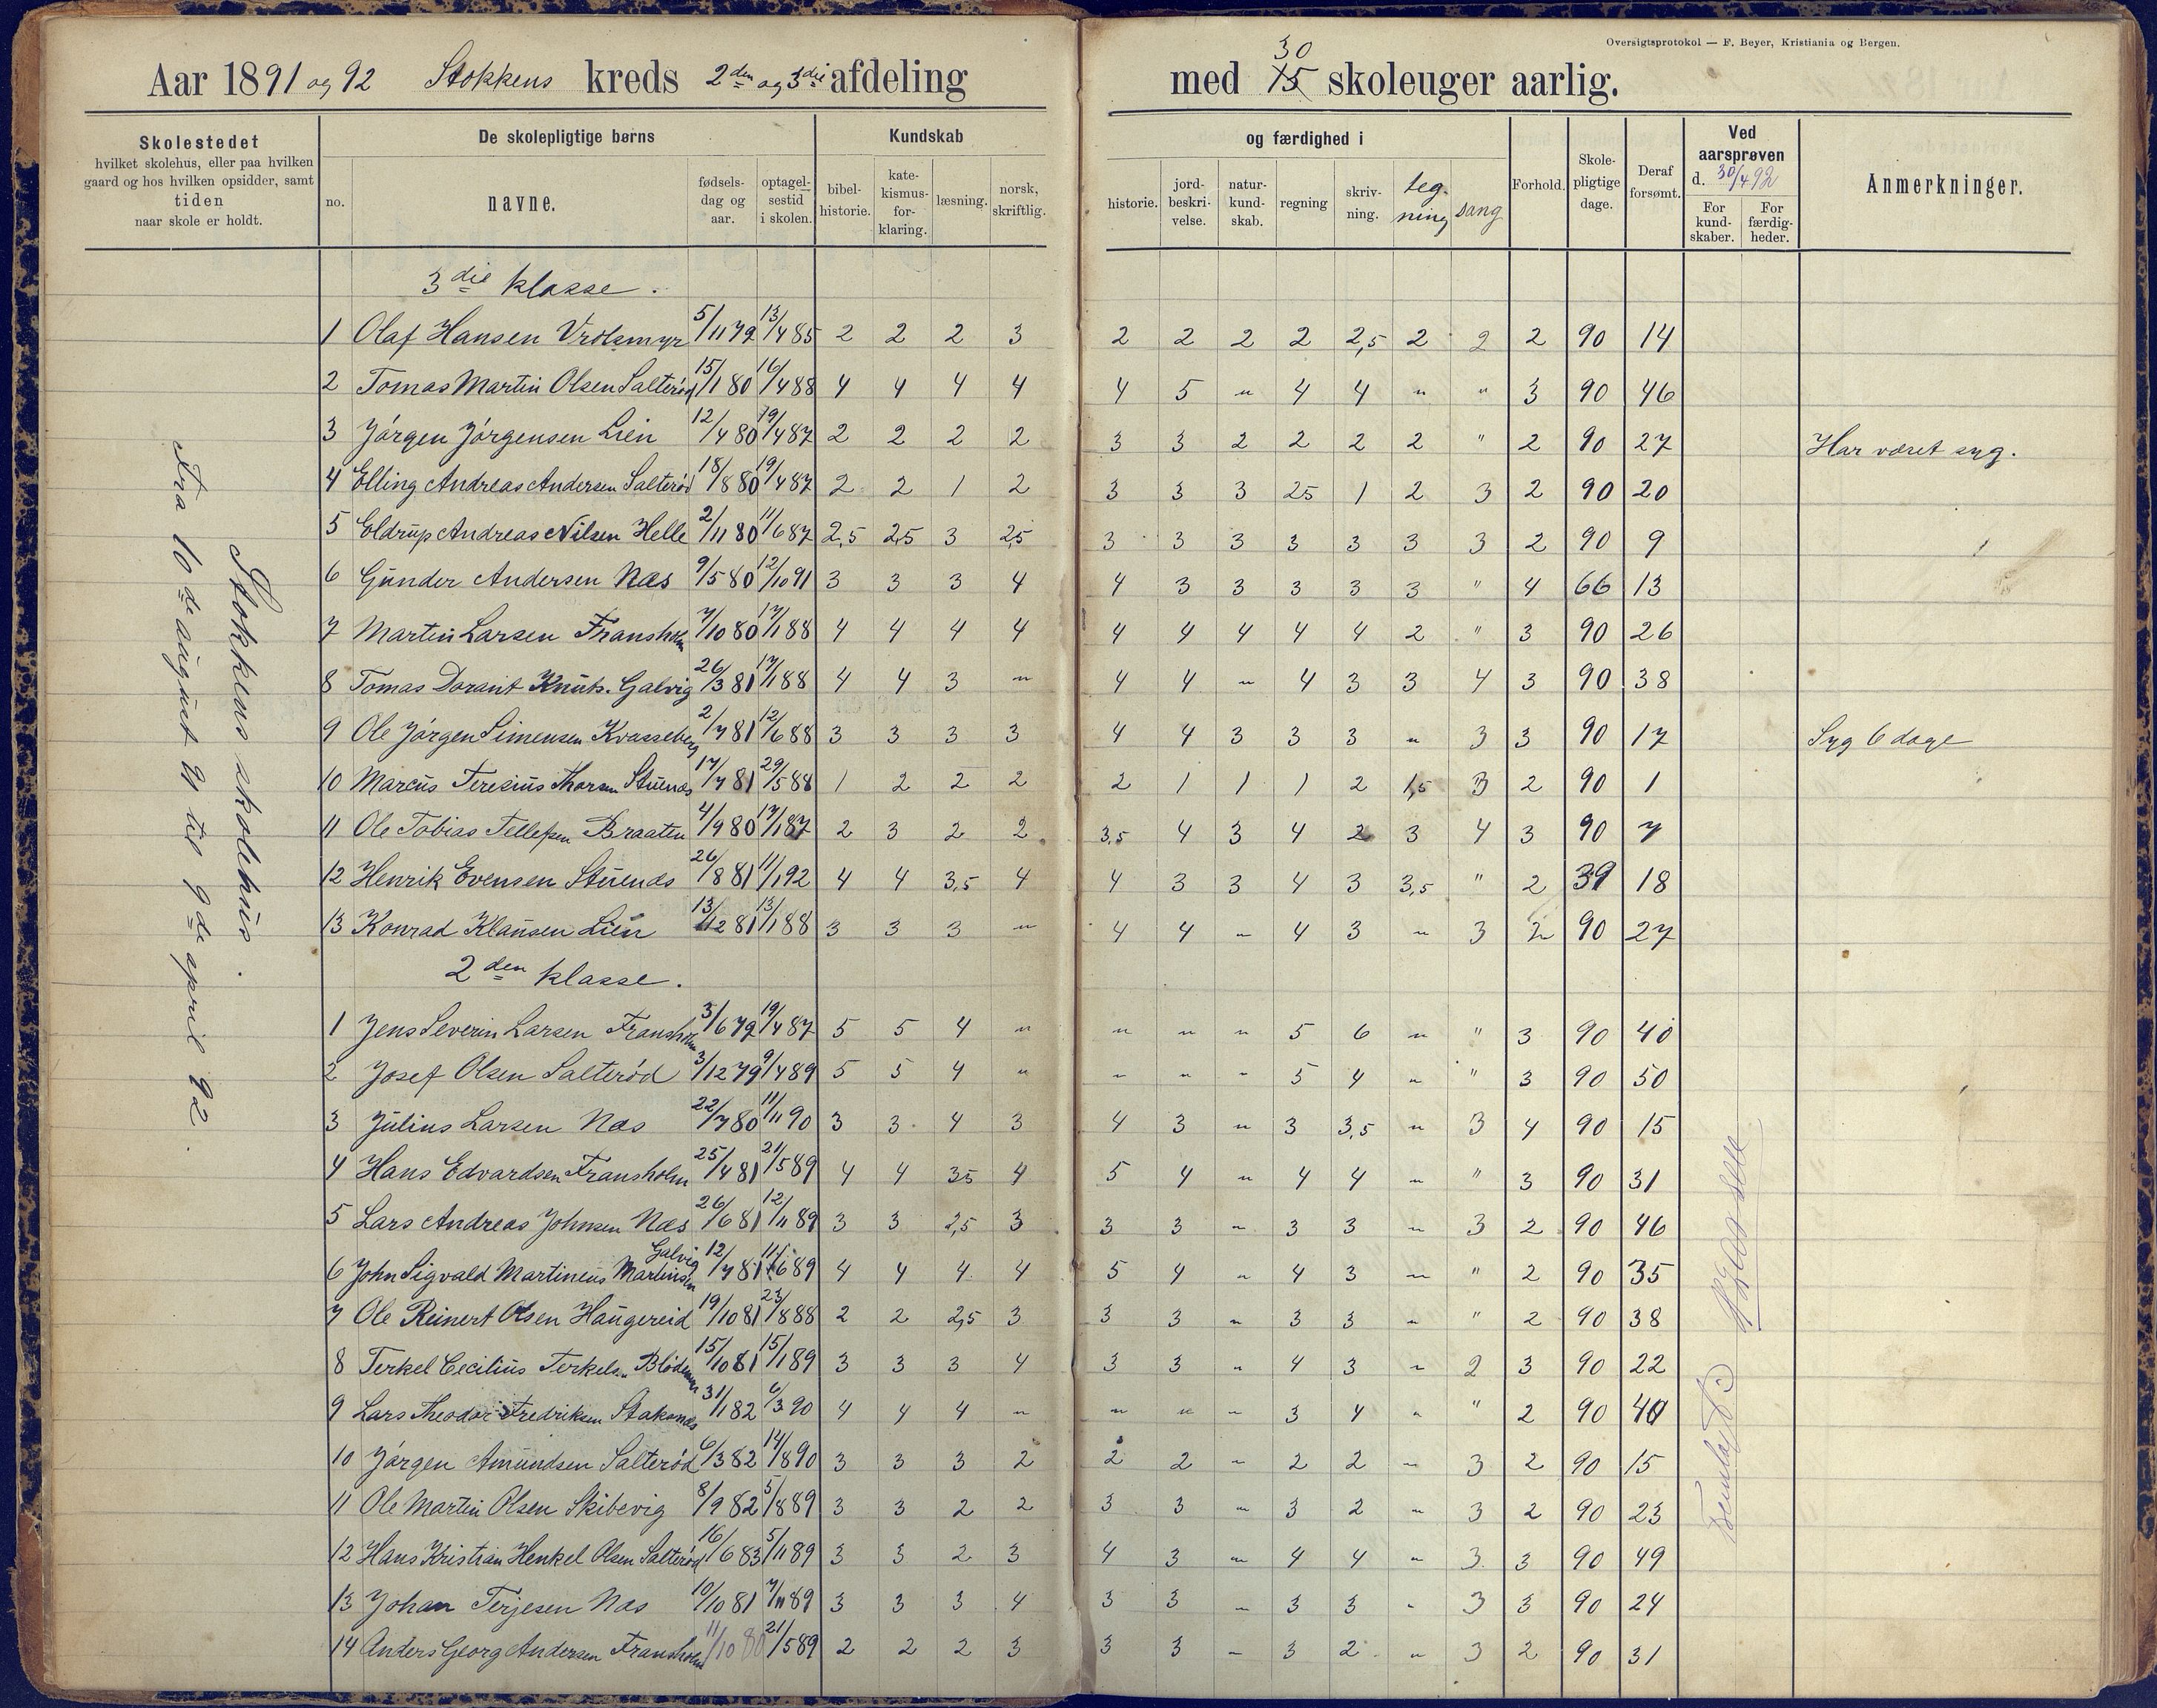 Oversigtsprotokol — F. Beyer, Kristiania og Bergen.
Aar 1891 og 92 Stokkens kreds 2den og 3die afdeling med 15 30 skoleuger aarlig.
Skolestedet hvilket skolehus, eller paa hvilken gaard og hos hvilken opsidder, samt tiden naar skole er holdt.
De skolepligtige børns
no. navne. fødsels-dag og aar. optagel-sestid i skolen.
Kundskab og færdighed i
bibel-historie. kate-kismus-for-klaring. læsning. norsk, skriftlig. historie. jord-beskri-velse. natur-kund-skab. regning skriv-ning. teg-ning sang
Forhold. Skole-pligtige dage. Deraf forsømt.
Ved aarsprøven d. 30/4 92
For kund-skaber. For færdig-heder.
Anmerkninger.
Stokkens skolehus.
Fra 10de august 91 til 9de april 92.
3die klasse.
1 Olaf Hansen Vrolsmyr 5/11 79 13/4 85 2 2 2 3 2 2 2 2 2,5 2 2 2 90 14
2 Tomas Martin Olsen Salterød 15/1 80 16/4 88 4 4 4 4 4 5 " 4 4 " " 3 90 46
3 Jórgen Jórgensen Lien 12/4 80 19/4 87 2 2 2 2 3 3 2 2 2 2 " 2 90 27 Har været syg.
4 Elling Andreas Andersen Salterød 18/8 80 19/4 87 2 2 1 2 3 3 3 25 1 2 3 2 90 20
5 Eldrup Andreas Nilsen Helle 2/11 80 11/6 87 2,5 2,5 3 2,5 3 3 3 3 3 3 3 2 90 9
6 Gunder Andersen Næs 9/5 80 12/10 91 3 3 3 4 4 3 3 3 3 3 " 4 66 13
7 Martin Larsen Fransholm 7/10 80 17/1 88 4 4 4 4 4 4 4 4 4 2 " 3 90 26
8 Tomas Dorant Knuts. Galvig 26/3 81 17/1 88 4 4 3 " 4 4 " 4 3 3 4 3 90 38
9 Ole Jórgen Simensen Kvasseberg 2/7 81 12/6 88 3 3 3 3 4 4 3 3 3 " 3 3 90 17 Syg 6 dage
10 Marcus Teresius Thorsen Stuenæs 17/7 81 29/5 88 1 2 2 2 2 1 1 1 2 1,5 3 2 90 1
11 Ole Tobias Tellefsen Braaten 4/9 80 17/1 87 2 3 2 2 3,5 4 3 4 2 3 4 3 90 7
12 Henrik Evensen Stuenæs 26/8 81 11/1 92 4 4 3,5 4 4 3 3 4 3 3,5 " 2 39 18
13 Konrad Klausen Lien 13/12 81 13/1 88 3 3 3 " 4 4 " 4 3 " 3 2 90 27
2den klasse.
1 Jens Severin Larsen Fransholm 3/6 79 19/4 87 5 5 4 " " " " 5 6 " " 3 90 40
2 Josef Olsen Salterød 3/12 79 9/4 89 5 5 4 " " " " 5 4 " " 3 90 50
3 Julius Larsen Næs 22/7 80 11/11 90 3 3 4 3 4 3 " 3 3,5 " 3 4 90 15
4 Hans Edvardsen Fransholm 25/4 81 21/5 89 4 4 35 4 5 4 " 4 4 " " 3 90 31
5 Lars Andreas Johnsen Næs 26/6 81 12/11 89 3 3 2,5 3 3 3 " 3 3 " 3 2 90 46
6 John Sigvald Martineus Martinsen Galvig 12/7 81 11/6 89 4 4 4 4 5 4 " 4 3 " " 2 90 35
7 Ole Reinert Olsen Haugereid 19/10 81 23/8 88 2 2 2,5 3 3 3 " 3 3 " " 2 90 38
8 Terkel Cecilius Terkels. 15/10 81 15/1 89 3 3 3 4 3 3 " 4 3 " 2 3 90 22
9 Lars Theodor Fredriksen Staksnæs 31/1 82 6/3 90 4 4 4 " " " " 3 4 " " 2 90 40
10 Jórgen Amundsen Salterød 6/3 82 14/8 90 3 3 3 2 2 2 " 2 2 " 3 2 90 15
11 Ole Martin Olsen Skibevig 8/9 82 5/8 89 3 3 2 2 3 3 " 3 2 " 3 2 90 23
12 Hans Kristian Henkel Olsen Salterød 16/6 83 5/11 89 3 3 2 3 4 3 " 4 4 " 3 3 90 49
13 Johan Terjesen Næs 10/10 81 7/11 89 3 3 3 4 3 3 " 3 3 " 3 3 90 24
14 Anders Georg Andersen Fransholm 11/10 80 21/5 89 2 2 2 3 3 3 " 3 2 " 3 2 90 31